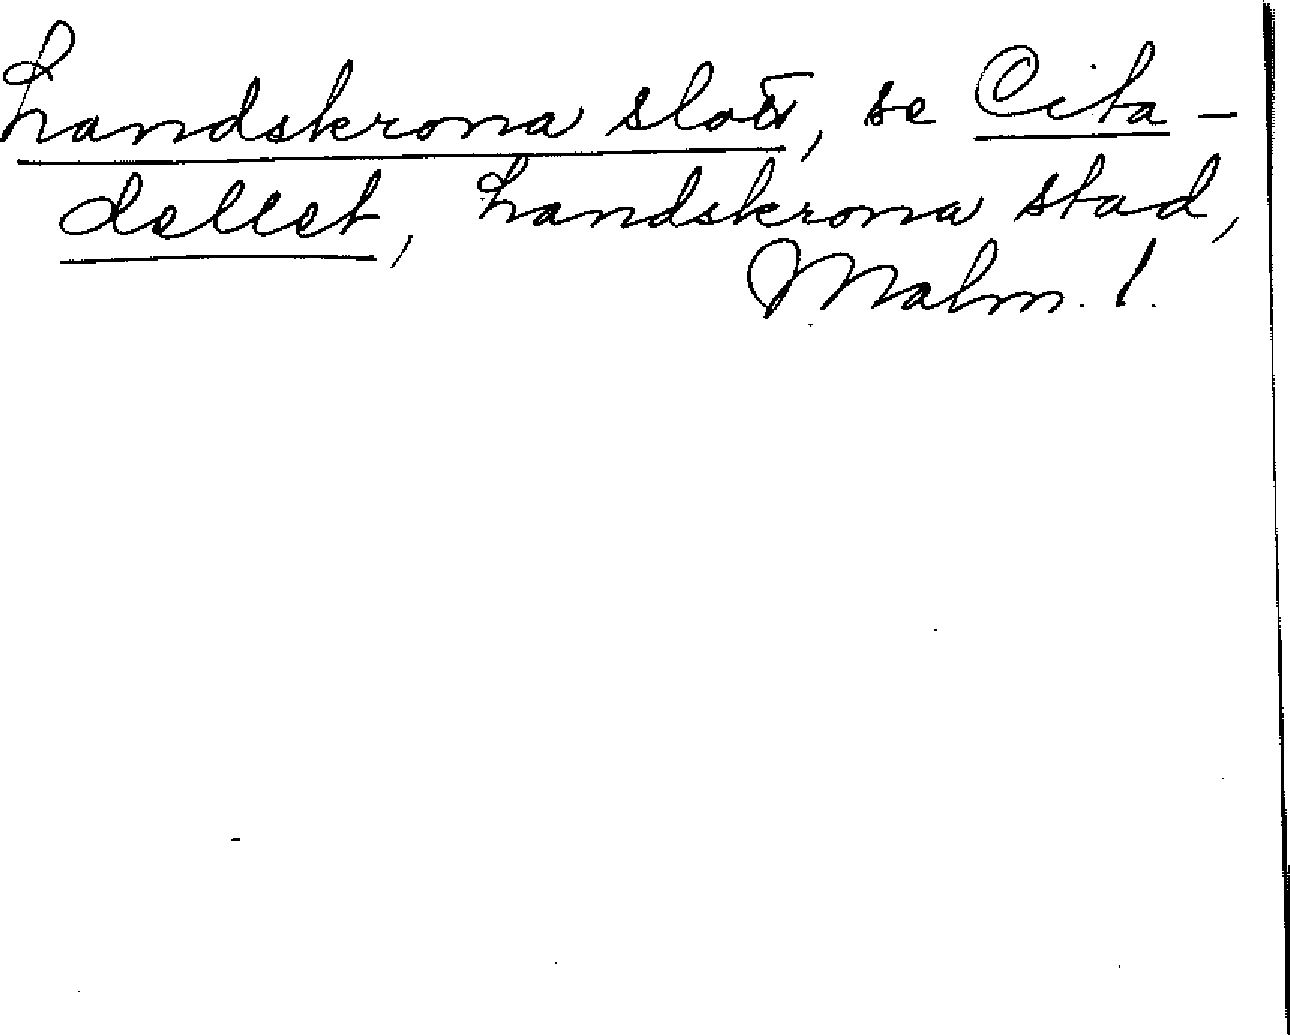 Landskrona slott, se Cita-
dellet, Landskrona stad,
Malm. l.